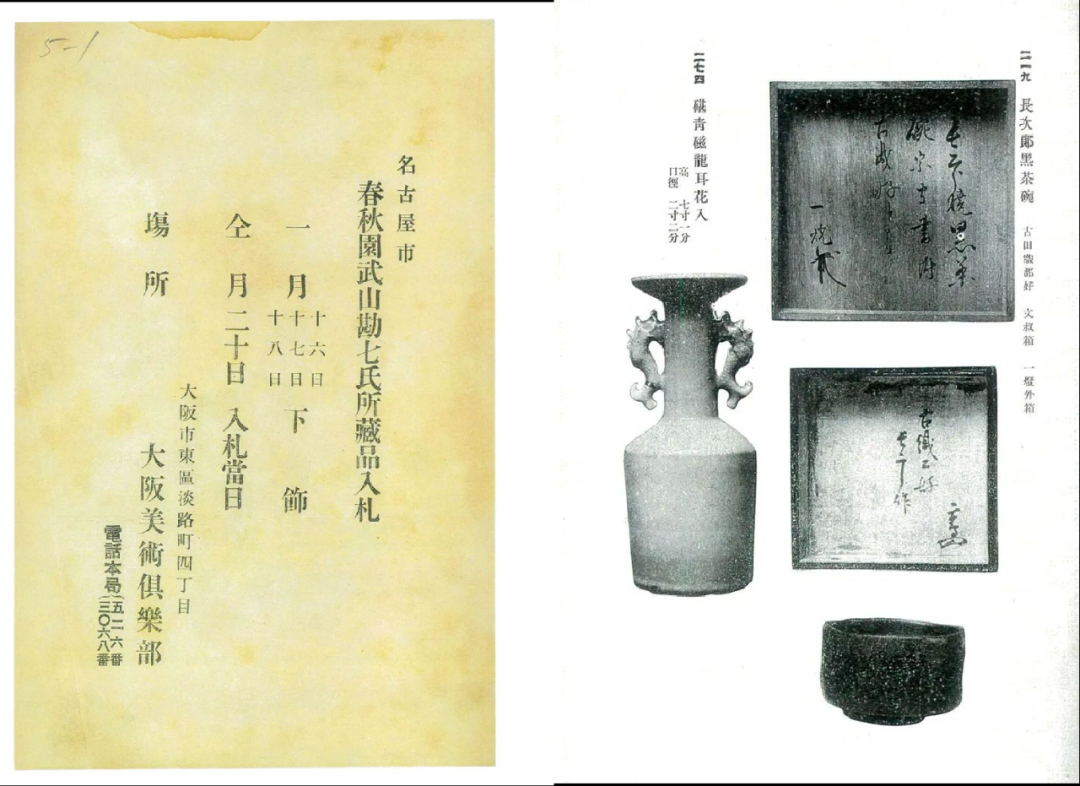 5-1
名古屋市
春秋園武山勘七氏所藏品入札
一月
十六日
十七日
十八日
下餝
仝月二十日入札當日
塲所
大阪市東區淡路町四丁目
大阪美術倶樂部
電話本局
五二六番
三〇六八番
二一九 長次郎黒茶碗 古田織部好 文叔箱 一燈外箱
二七四 碪青磁龍耳花入
高 七寸一分
口徑 二寸二分